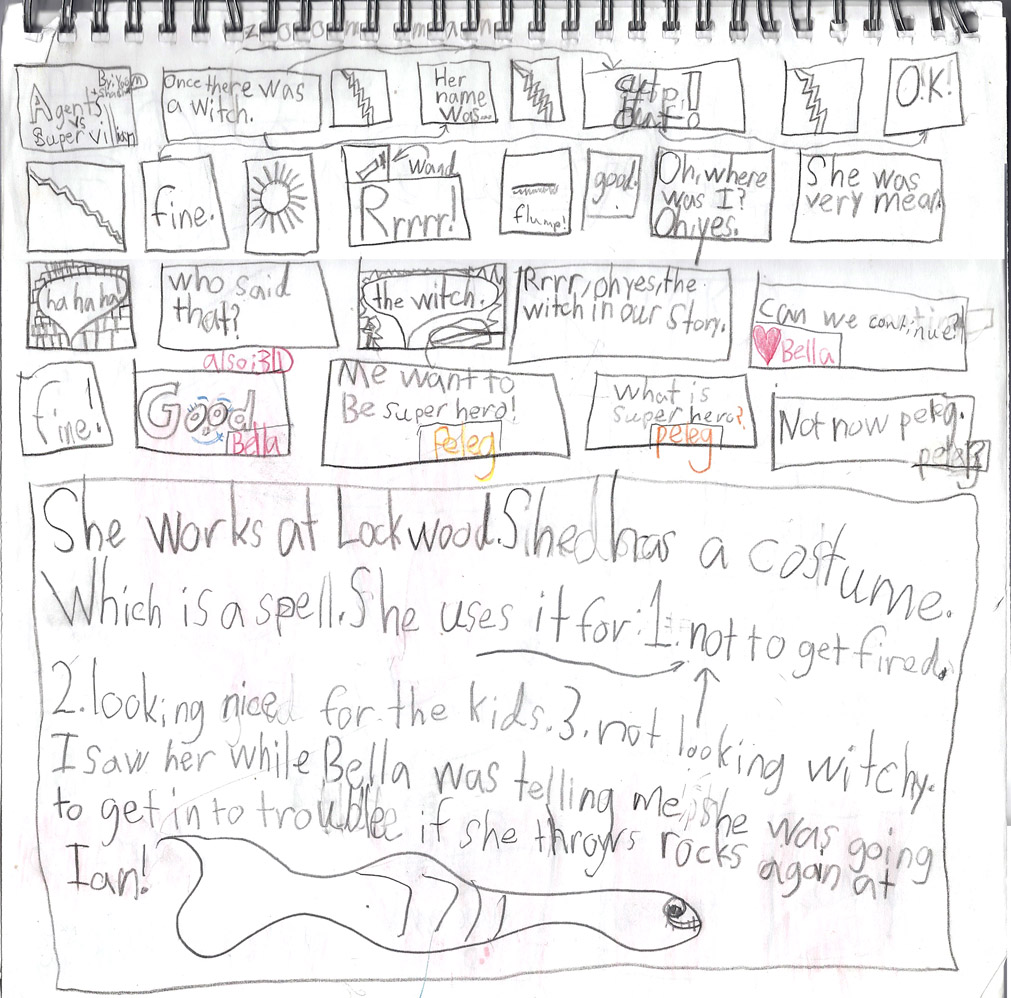 zoom man
Agents
vs.
Super Villian
Once there was
a witch.
Her
name
was...
O.K!
fine.
wand
Rrrrr!
flump!
good.
Oh, where
was I?
Oh, yes.
She was
very mean.
ha ha ha
who said
that?
the witch.
Rrrr, oh yes, the
witch in our story.
Can we continue?
Bella
fine!
also:BD
Good
Bella
Me want to
Be super hero!
Peleg
what is
super hero?
peleg
Not now peleg.
peleg
She works at Lockwood. She has a costume.
Which is a spell. She uses it for: 1. not to get fired.
2. looking nice for the kids. 3. not looking witchy.
I saw her while Bella was telling me, she was going
to get in to trouble if she throws rocks again at
Ian!